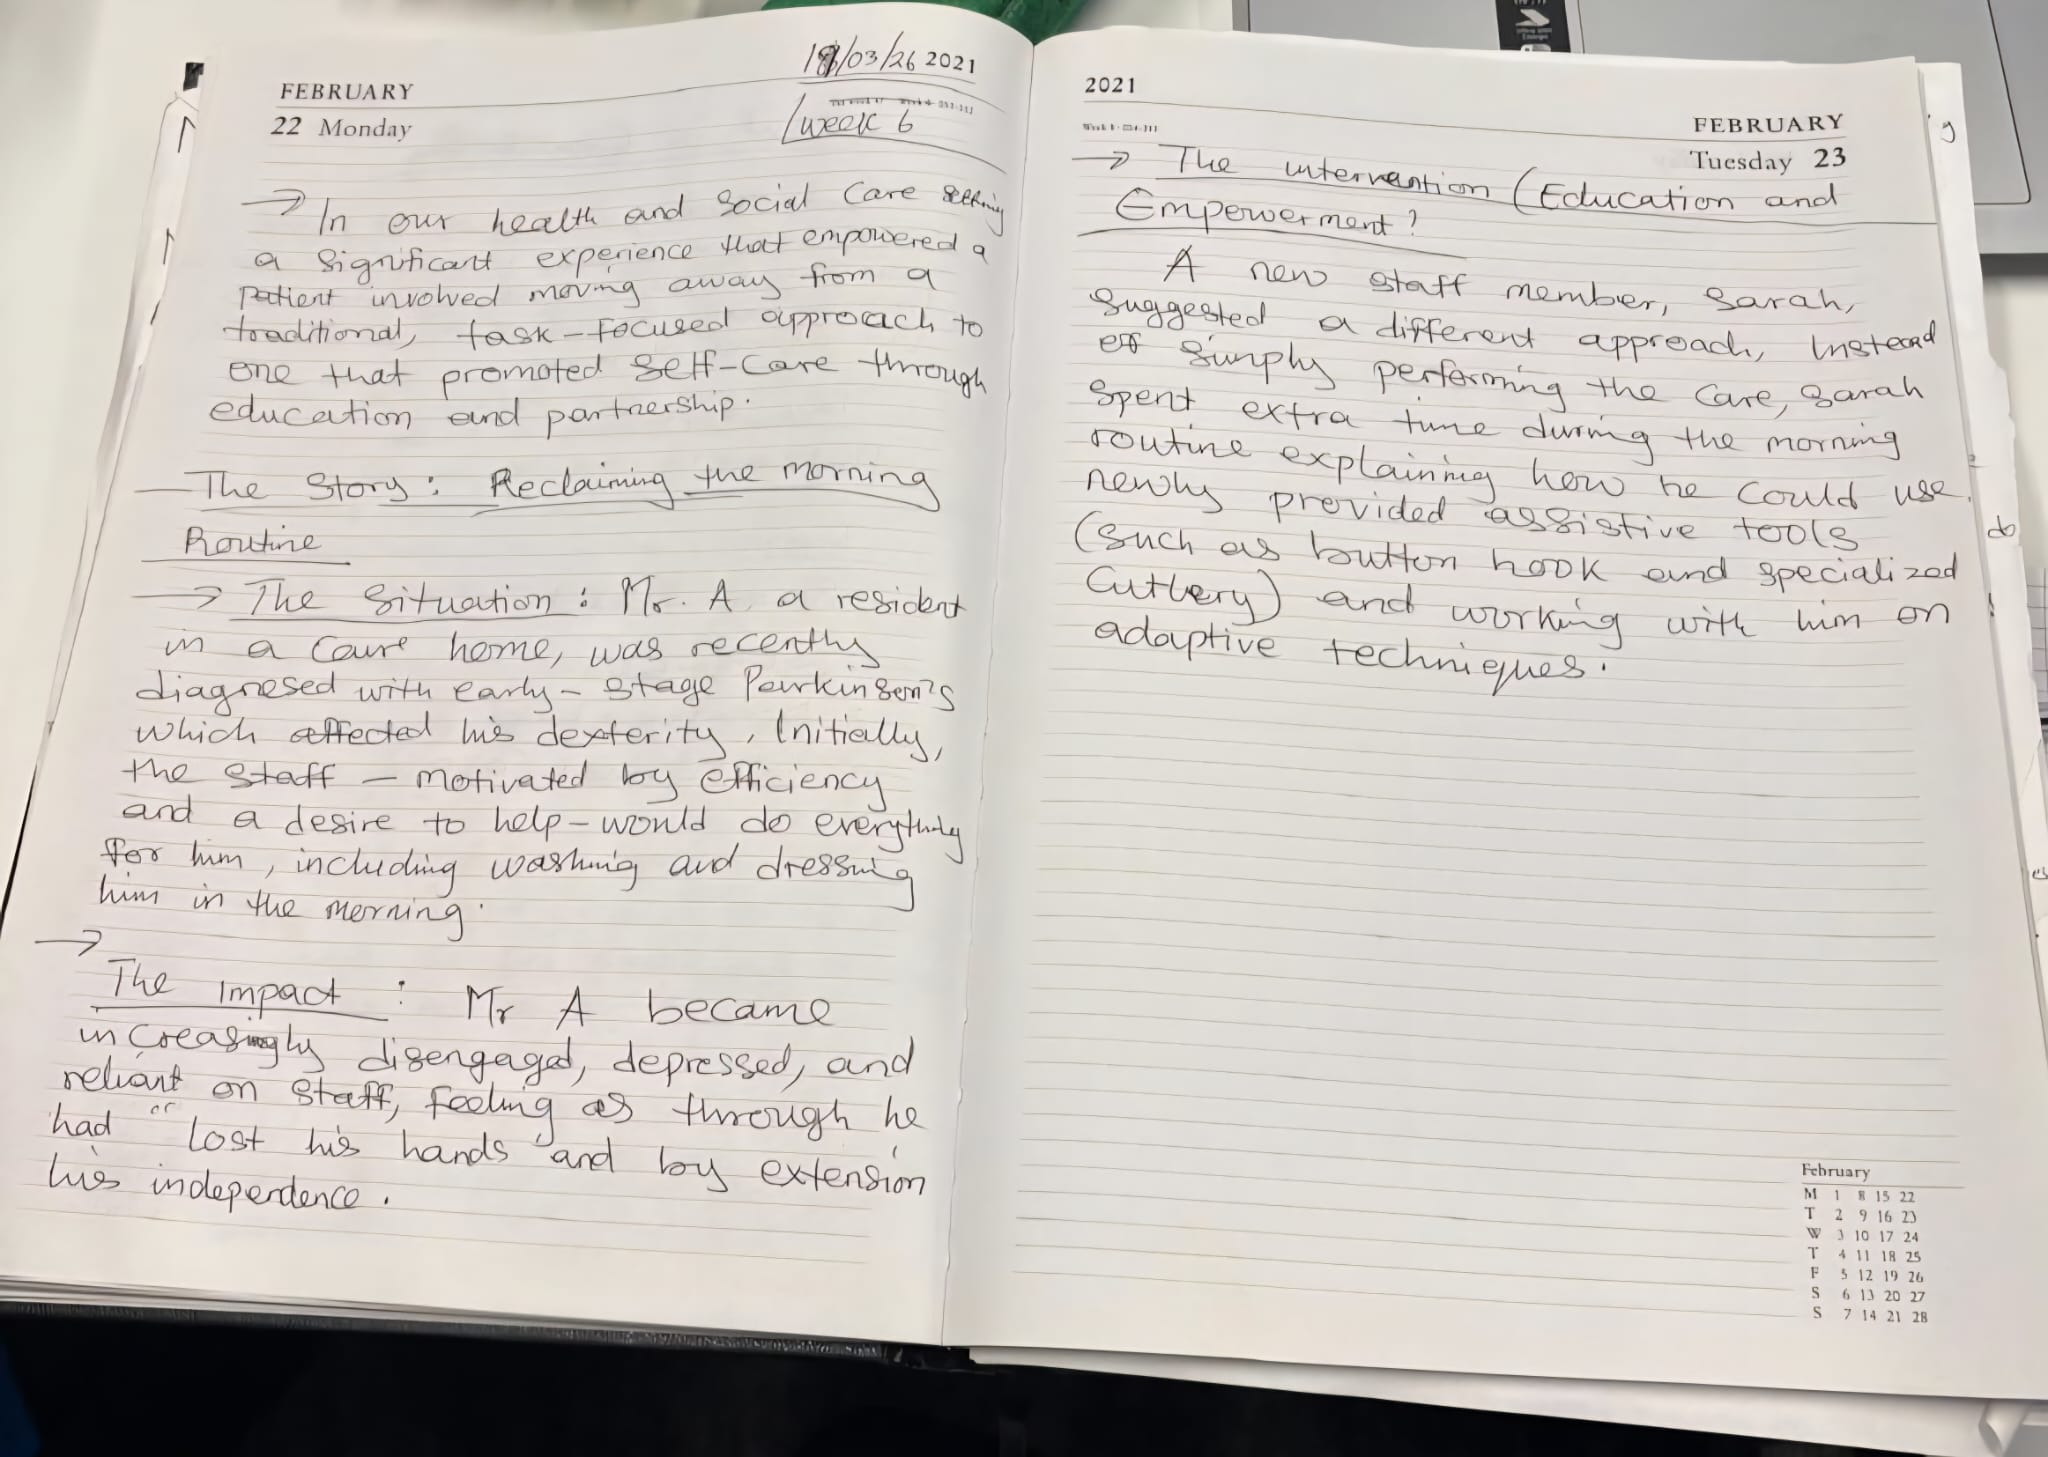 FEBRUARY
22 Monday
18/03/26 2021
Week 6
→ In our health and social care setting
a significant experience that empowered a
patient involved moving away from a
traditional, task-focused approach to
one that promoted self-care through
education and partnership.
The Story: Reclaiming the morning
Routine
→ The situation: Mr. A a resident
in a care home, was recently
diagnosed with early-stage Parkinson's
which affected his dexterity, Initially,
the staff - motivated by efficiency
and a desire to help - would do everything
for him, including washing and dressing
him in the morning.
→
The Impact: Mr A became
increasingly disengaged, depressed, and
reliant on staff, feeling as through he
had "lost his hands" and by extension
his independence.
2021
FEBRUARY
Tuesday 23
→ The intervention (Education and
Empowerment?
A new staff member, Sarah,
suggested a different approach, Instead
of simply performing the care, Sarah
spent extra time during the morning
routine explaining how he could use
newly provided assistive tools
(such as button hook and specialized
cutlery) and working with him on
adaptive techniques.
February
M 1 8 15 22
T 2 9 16 23
W 3 10 17 24
T 4 11 18 25
F 5 12 19 26
S 6 13 20 27
S 7 14 21 28